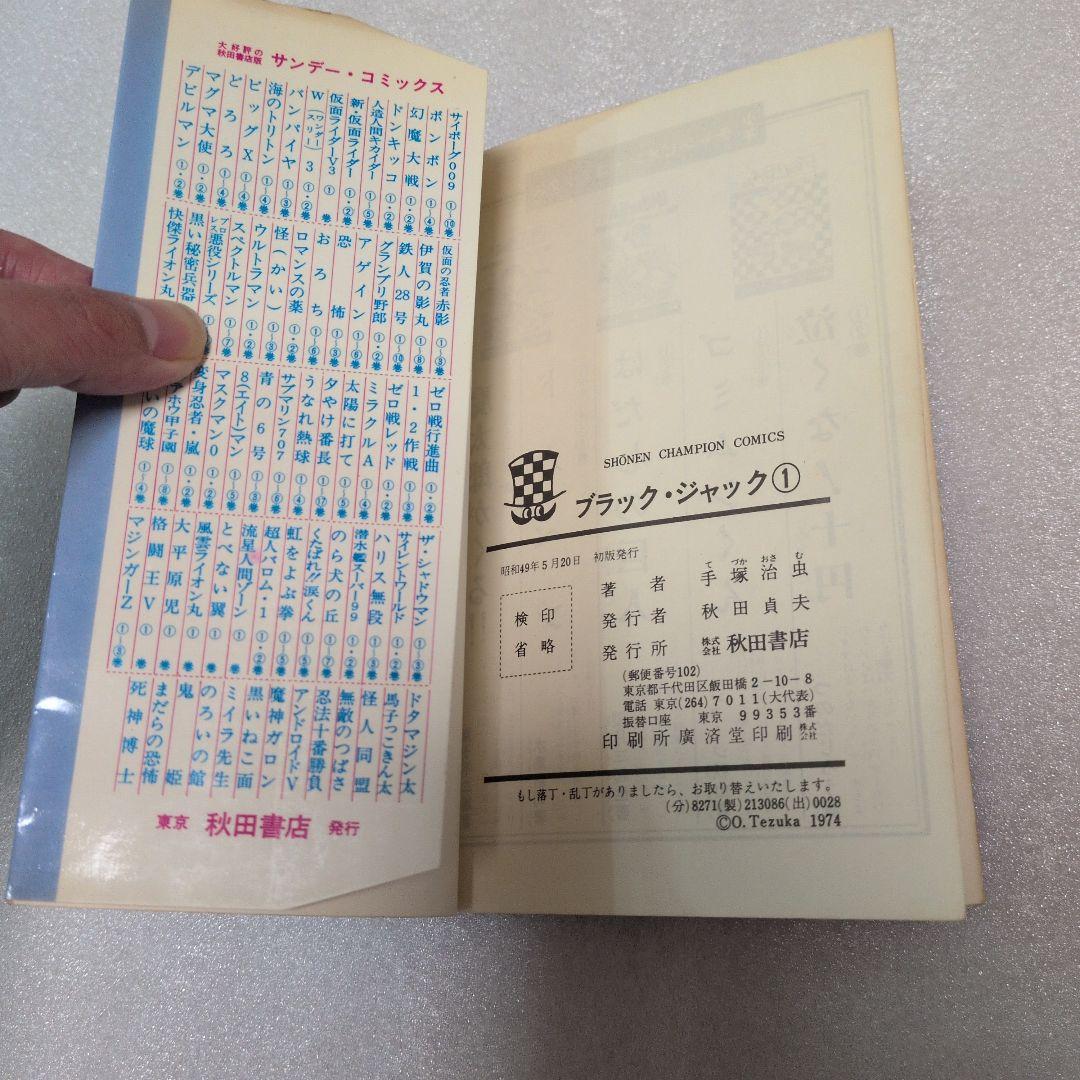 大好評の
秋田書店版
サンデー・コミックス
サイボーグ009 ①〜⑩巻
ボンボン ①〜④巻
幻魔大戦 ①・②巻
ドンキッコ ①・②巻
人造人間キカイダー ①〜⑤巻
新・仮面ライダー ①・②巻
仮面ライダーV3 ①巻
W3(ワンダースリー) ①・②巻
バンパイヤ ①〜③巻
海のトリトン ①〜④巻
ビッグX ①〜④巻
どろろ ①〜④巻
マグマ大使 ①・②巻
デビルマン ①・②巻
仮面の忍者赤影 ①〜③巻
伊賀の影丸 ①〜⑧巻
鉄人28号 ①〜⑩巻
グランプリ野郎 ①・②巻
アゲイン ①〜⑥巻
恐怖 ①〜③巻
おろち ①〜⑥巻
ロマンスの薬 ①・②巻
怪(かい) ①〜③巻
ウルトラマン ①・②巻
スペクトルマン ①〜⑦巻
プロレス悪役シリーズ ①
黒い秘密兵器
快傑ライオン丸
ゼロ戦行進曲 ①・②巻
1・2作戦 ①〜③巻
ゼロ戦レッド ①〜③巻
ミラクルA ①〜④巻
太陽に打て ①〜⑤巻
夕やけ番長 ①〜⑰巻
うなれ熱球 ①〜④巻
サブマリン707 ①〜⑥巻
青の6号 ①〜③巻
8(エイト)マン ①〜⑤巻
マスクマン0 ①・②巻
変身忍者・嵐 ①・②巻
アホウ甲子園 ①〜⑧巻
いの魔球 ①〜④巻
ザ・シャドウマン ①〜③巻
サイレントワールド ①・②巻
ハリス無段 ①〜④巻
潜水艦スーパー99 ①巻
のら犬の丘 ①〜⑦巻
くたばれ!!涙くん ①〜⑤巻
虹をよぶ拳 ①〜⑤巻
超人バロム・1 ①・②巻
流星人間ゾーン ①巻
とべない翼 ①巻
風雲ライオン丸 ①巻
大平原児 ①巻
格闘王V ①巻
マジンガーZ ①〜③巻
ドタマジン太
馬子っこきん太
怪人同盟
無敵のつばさ
忍法十番勝負
アンドロイドV
魔神ガロン
黒いねこ面
ミイラ先生
のろいの館
鬼姫
まだらの恐怖
死神博士
東京 秋田書店 発行
SHŌNEN CHAMPION COMICS
ブラック・ジャック①
昭和49年5月20日 初版発行
検印
省略
著者 手塚治虫
てづかおさむ
発行者 秋田貞夫
発行所 株式会社 秋田書店
(郵便番号102)
東京都千代田区飯田橋2−10−8
電話 東京(264)7011(大代表)
振替口座 東京 99353番
印刷所 廣済堂印刷株式会社
もし落丁・乱丁がありましたら、お取り替えいたします。
(分)8271(製)213086(出)0028
©O. Tezuka 1974